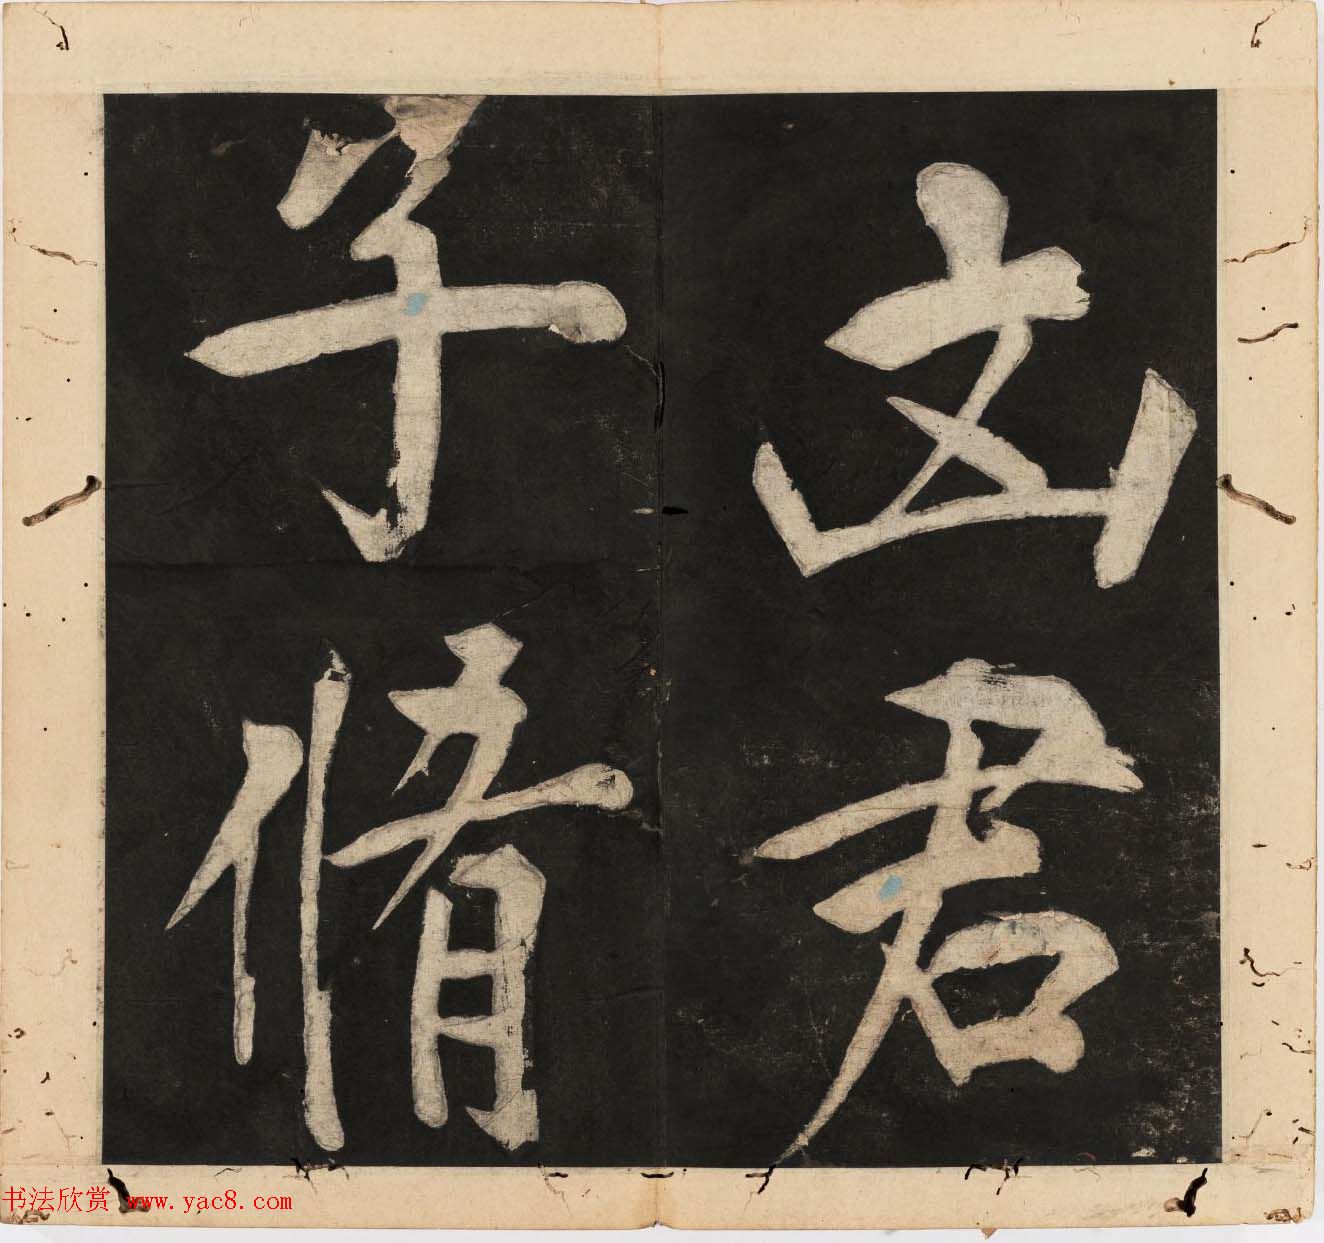 㐫君
子脩
书法欣赏 www.yac8.com